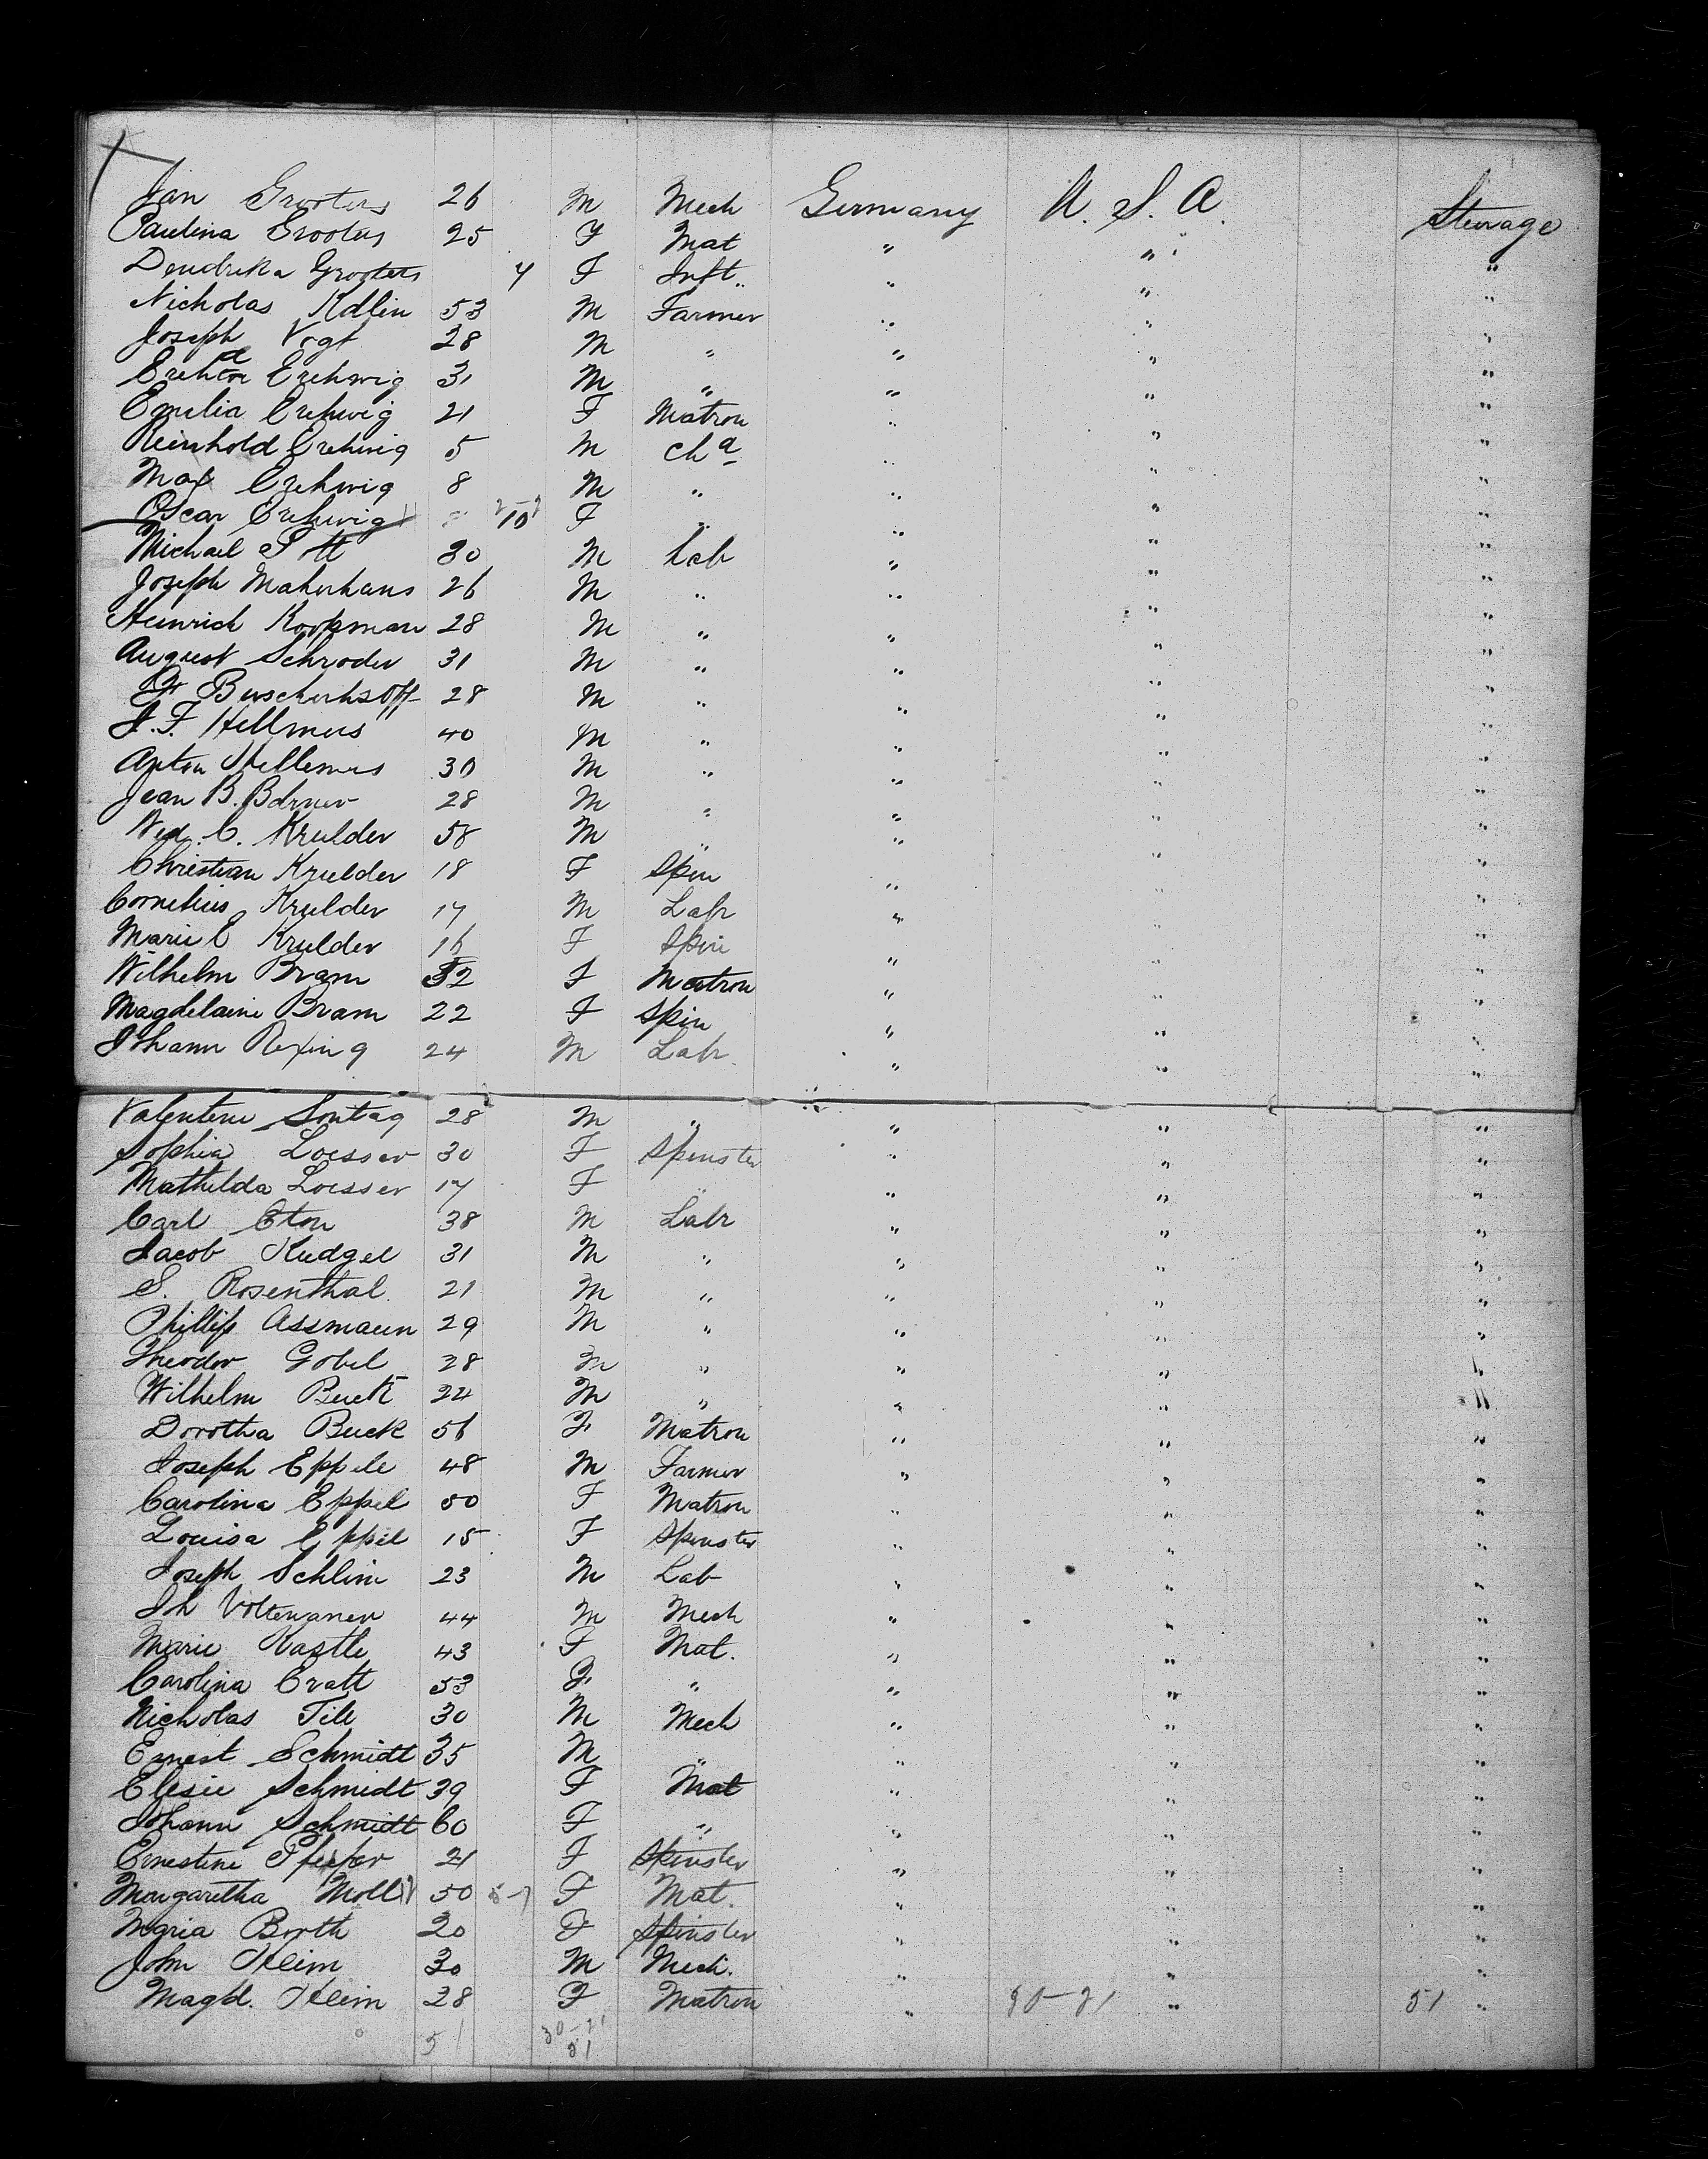 Jan Grooters 26 M Mech Germany U. S. A. Steerage
Paulina Grooters 25 F Mat " " "
Dendrika Grooters 4 F Inft. " " "
Nicholas Kdlin 53 M Farmer " " "
Joseph Vogt 28 M " " " "
Erehwig 31 M " " " "
Emelia Erehwig 21 F Matron " " "
Reinhold Erehwig 5 M Chd " " "
Max Erehwig 8 M " " " "
Oscar Erehwig 10 F " " " "
Michael Ott 30 M Lab " " "
Joseph Makerhans 26 M " " " "
Heinrich Koopman 28 M " " " "
August Schroder 31 M " " " "
Fr Buscherhsoff 28 M " " " "
J. F. Hellmers 40 M " " " "
Anton Hellemers 30 M " " " "
Jean B. Bdrner 28 M " " " "
Wed. C. Krulder 58 M " " " "
Christian Krulder 18 F Spin " " "
Cornelius Krulder 17 M Labr " " "
Marie C Krulder 16 F Spin " " "
Wilhelm Bram 52 F Matron " " "
Magdelaine Bram 22 F Spin " " "
Johann Rexing 24 M Labr. " " "
Valentine Sontag 28 M " " " "
Sophia Loesser 30 F Spinster " " "
Mathilda Loesser 17 F " " " "
Carl Eton 38 M Labr " " "
Jacob Kudgel 31 M " " " "
S. Rosenthal. 21 M " " " "
Phillip Assmann 29 M " " " "
Theodor Gobel 28 M " " " "
Wilhelm Buck 24 M " " " "
Dorotha Buck 56 F Matron " " "
Joseph Eppele 48 M Farmer " " "
Carolina Eppel 50 F Matron " " "
Louisa Eppel 15 F Spinster " " "
Joseph Schlim 23 M Lab " " "
Jh 44 M Mech " " "
Marie Kastle 43 F Mat. " " "
Carolina Cratt 53 F " " " "
Nicholas Till 30 M Mech " " "
Ernest Schmidt 35 M " " " "
Elesie Schmidt 39 F Mat " " "
Johann Schmidt 60 F " " " "
Ernestine Pfeifer 21 F Spinster " " "
Margaretha Moll 50 F Mat. " " "
Maria Borth 20 F Spinster " " "
John Kleim 30 M Mech. " " "
Magd. Kleim 28 F Matron " 30-21 " 51 "
51 30-21
51